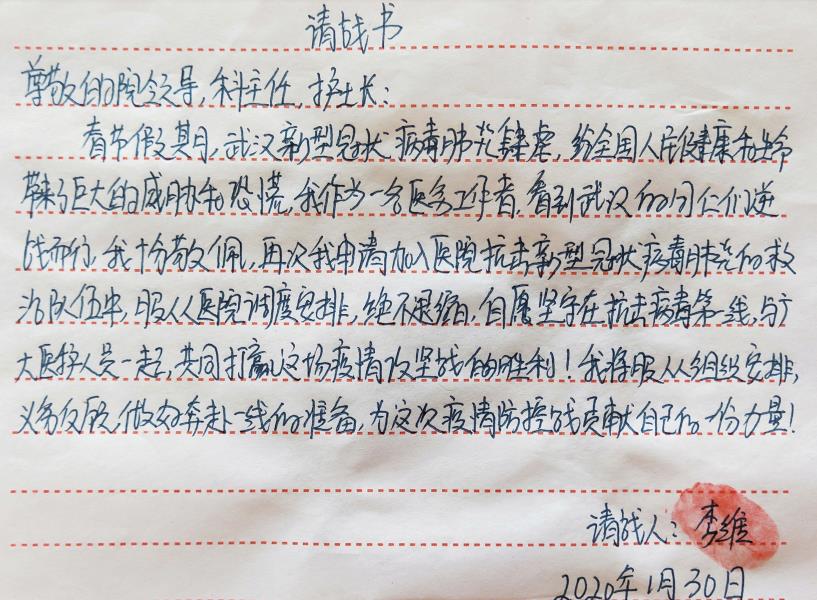 请战书
尊敬的院领导,科主任,护士长:
春节假期,武汉新型冠状病毒肺炎肆虐,给全国人民健康和生命
带来了巨大的威胁和恐慌,我作为一名医务工作者,看到武汉的同仁们逆
战而行,我十分敬佩,再次我申请加入医院抗击新型冠状病毒肺炎的救
治队伍中,服从医院调度安排,绝不退缩,自愿坚守在抗击病毒第一线,与广
大医护人员一起,共同打赢这场疫情攻坚战的胜利!我将服从组织安排,
义务反顾,做好奔赴一线的准备,为这次疫情防控战贡献自己的一份力量!
请战人:李维
2020年1月30日